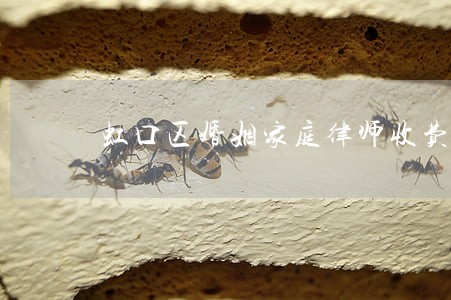 虹口区婚姻家庭律师收费